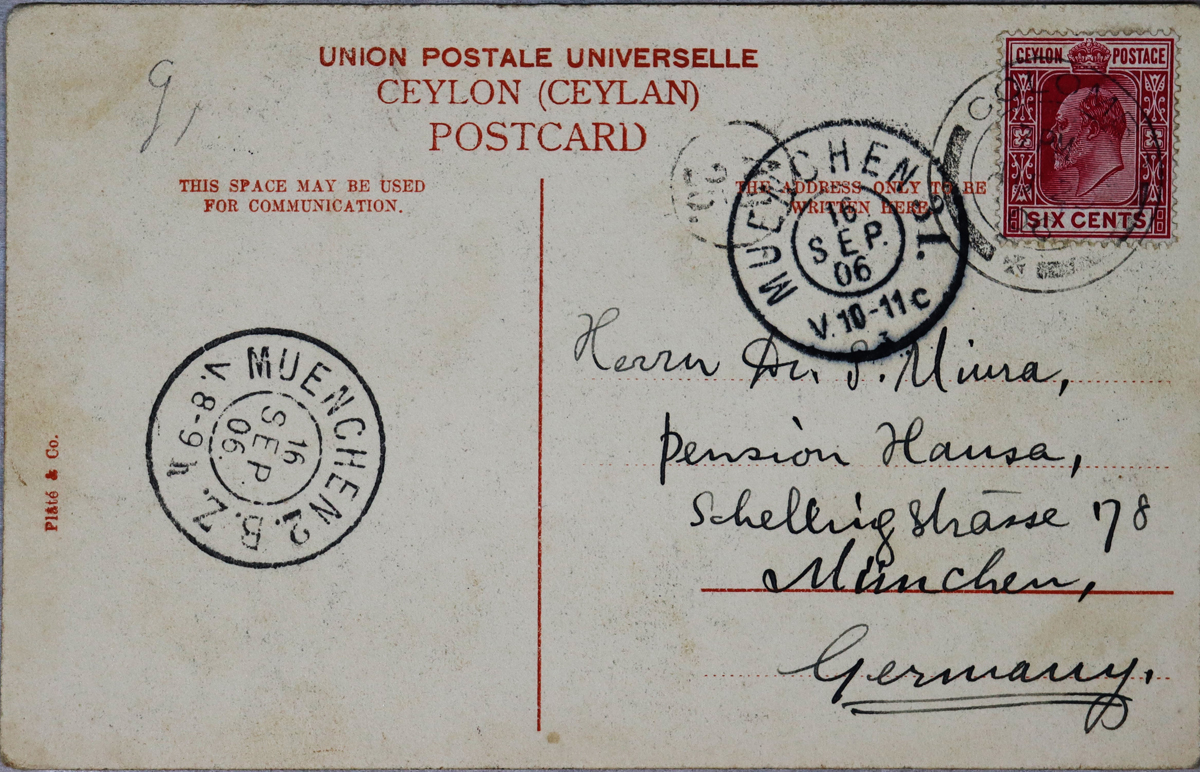 UNION POSTALE UNIVERSELLE
CEYLON (CEYLAN)
POSTCARD
THIS SPACE MAY BE USED
FOR COMMUNICATION.
THE ADDRESS ONLY TO BE
WRITTEN HERE.
CEYLON POSTAGE
SIX CENTS
MUENCHEN 31.
16
SEP.
06
V.10-11 C
Herrn Dr. S. Miura,
Pension Hausa,
Schellingstrasse 78
München,
Germany.
MUENCHEN 2. B.Z.
16
SEP.
06.
V.8-9
Plâté & Co.